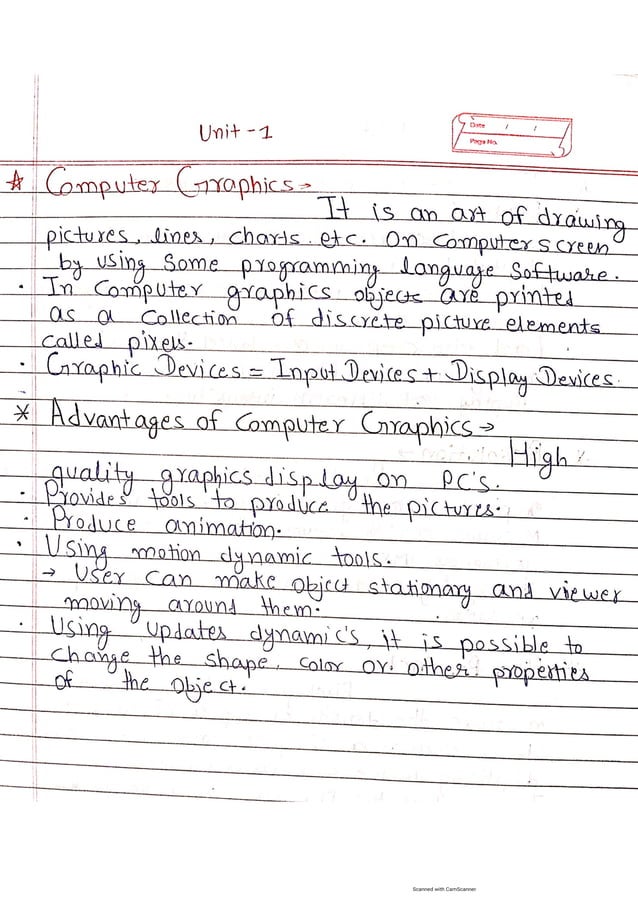 Unit - 1
Date / /
Page No.
☆ Computer Graphics →
It is an art of drawing
pictures, lines, charts etc. On Computer screen
by using Some programming language Software.
· In Computer graphics objects are printed
as a Collection of discrete picture elements
called pixels.
· Graphic Devices = Input Devices + Display Devices.
* Advantages of Computer Graphics →
High
quality graphics display on PC's.
· Provides tools to produce the pictures.
· Produce animation.
· Using motion dynamic tools.
→ User can make object stationary and viewer
moving around them.
· Using Updates dynamic's, it is possible to
change the shape, color or other properties
of the object.
Scanned with CamScanner